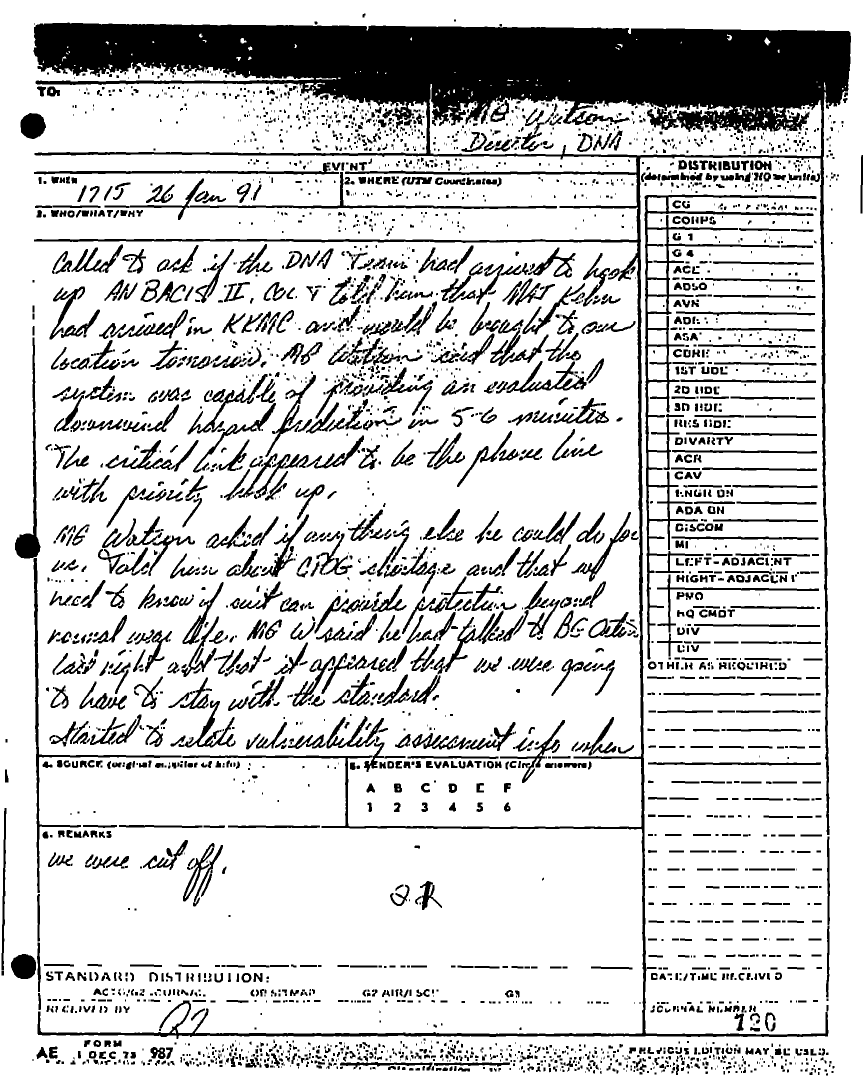 TO:
MG Watson
Director, DNA
EVENT
1. WHEN
1715 26 Jan 91
2. WHERE (UTM Coordinates)
3. WHO/WHAT/WHY
Called to ask if the DNA Team had arrived to hook
up AN BACIS II. Col T told him that MAJ Kehn
had arrived in KKMC and would be brought to our
location tomorrow. MG Watson said that the
system was capable of providing an evaluated
downwind hazard prediction in 5-6 minutes.
The critical link appeared to be the phone line
with priority hook up.
MG Watson asked if anything else he could do for
us. Told him about CPOG shortage and that we
need to know if suit can provide protection beyond
normal wear life. MG W said he had talked to BG
last night and that it appeared that we were going
to have to stay with the standard.
Started to relate vulnerability assessment info when
4. SOURCE (original supplier of info)
5. SENDER'S EVALUATION (Circle answers)
A B C D E F
1 2 3 4 5 6
6. REMARKS
we were cut off.
STANDARD DISTRIBUTION:
G2 JOURNAL OR SITMAP G2 AIR G3
RECEIVED BY
AE FORM 1 DEC 73 987
DISTRIBUTION
(determined by using HQ or units)
CG
CORPS
G 1
G 4
ACE
ADSO
AVN
ASA
1ST BDE
2D BDE
3D BDE
RES BDE
DIVARTY
ACR
CAV
ENGR BN
ADA BN
DISCOM
MI
LEFT-ADJACENT
RIGHT-ADJACENT
PMO
HQ CMDT
DIV
DIV
OTHER AS REQUIRED
DATE/TIME RECEIVED
JOURNAL NUMBER
120
PREVIOUS EDITION MAY BE USED.